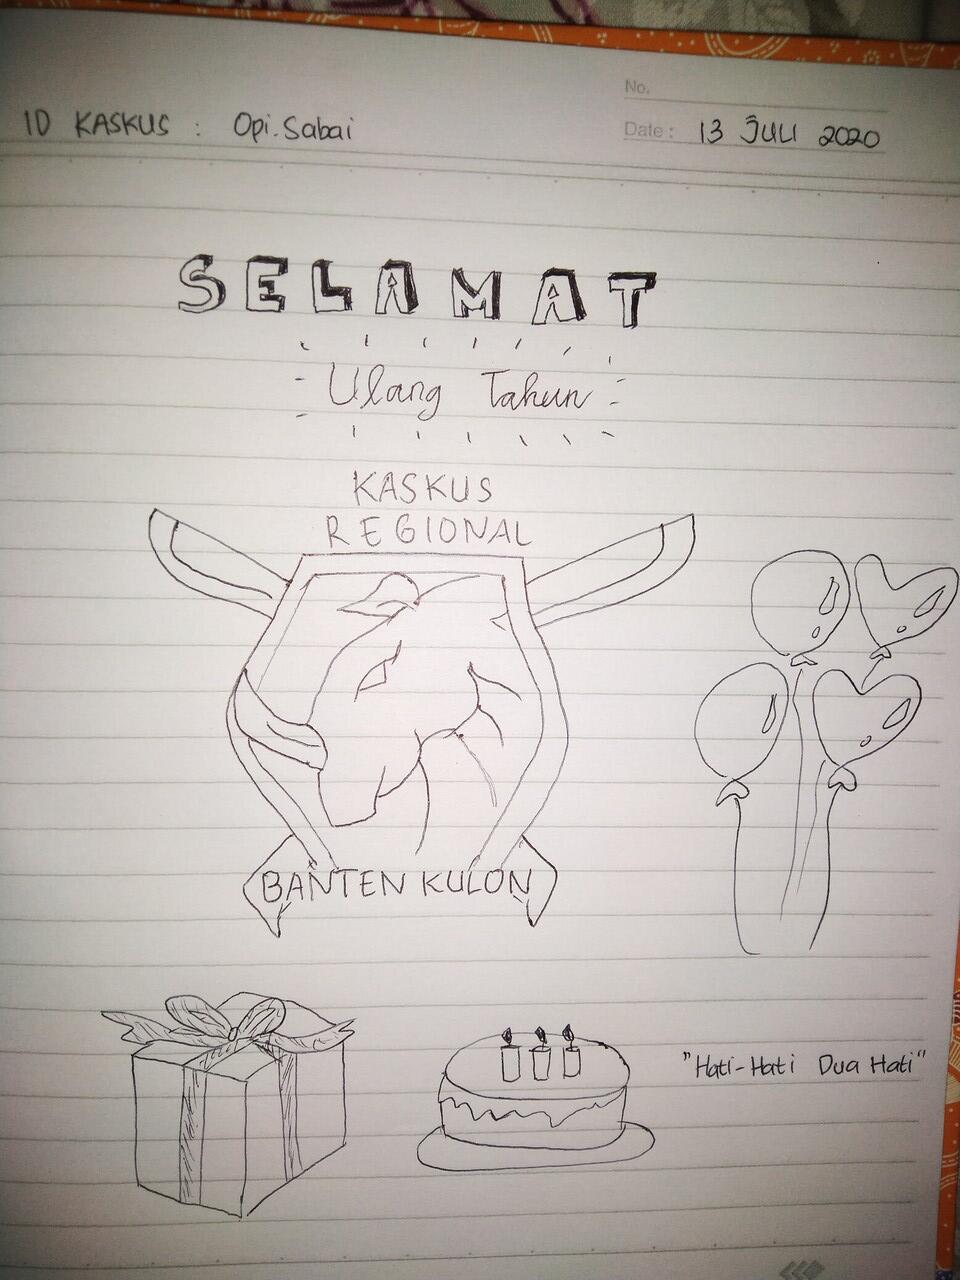 No.
ID KASKUS : Opi.Sabai
Date : 13 JULI 2020
SELAMAT
Ulang Tahun
KASKUS
REGIONAL
BANTEN KULON
"Hati-Hati Dua Hati"